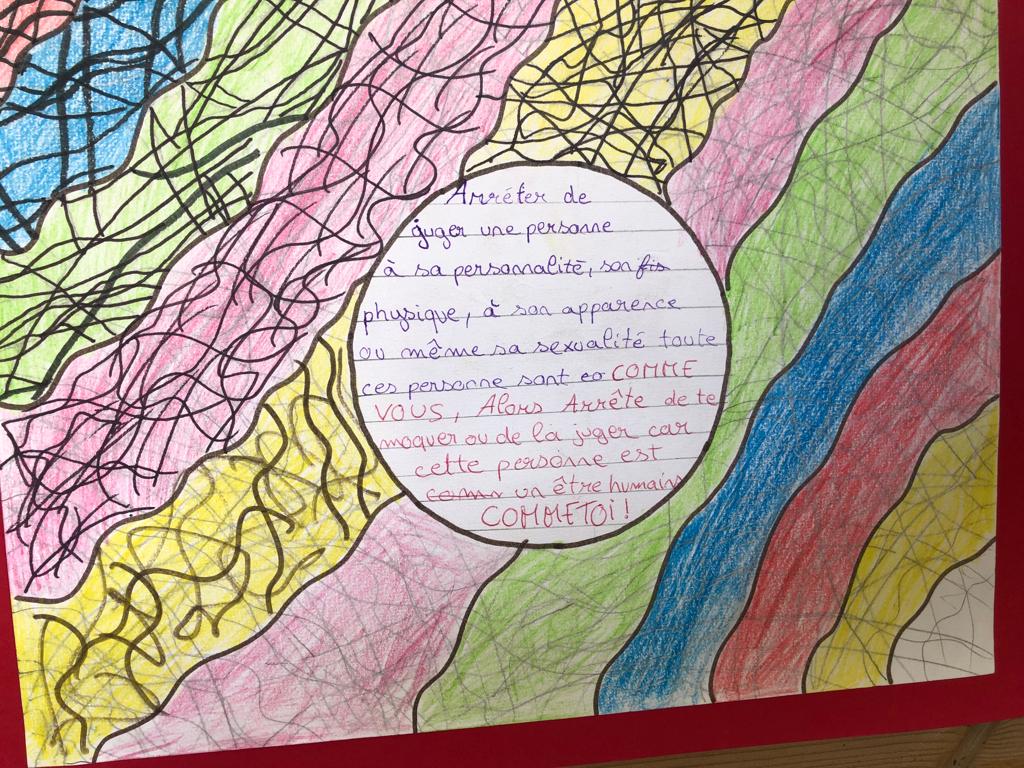 Arrêter de
juger une personne
à sa personnalité, son fis
physique, à son apparence
ou même sa sexualité toute
ces personne sont co COMME
VOUS, Alors Arrête de te
moquer ou de la juger car
cette personne est
comm un être humains
COMMETOI!